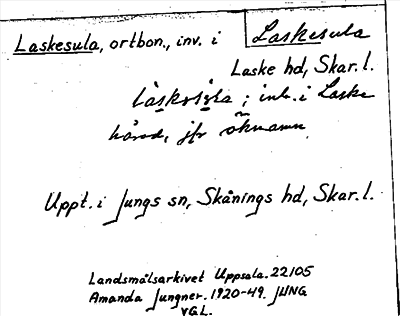 Laskesula, ortbon., inv. i Laskesula
Laske hd, Skar. l.
; inb. i Laske
härad, jfr öknamn
Uppt. i Jungs sn, Skånings hd, Skar. l.
Landsmålsarkivet Uppsala. 22105
Amanda Jungner. 1920-49. JUNG
VGL.